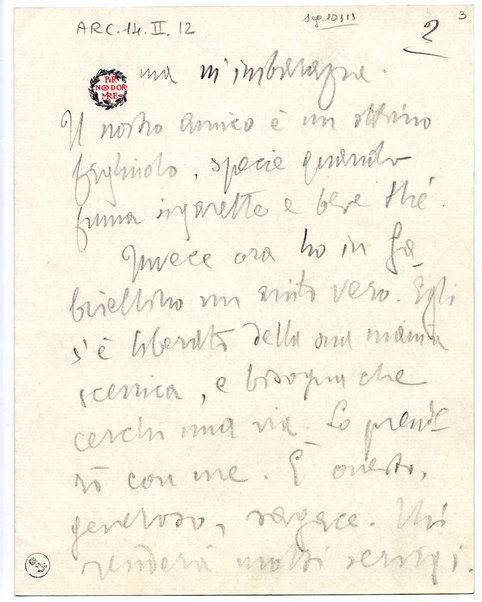 ARC. 14. II. 12
2
3
PER
NON DOR
MIRE
ma m'imbarazza.
Il nostro amico è un ottimo
figliuolo, specie quando
fuma sigarette e beve thé.
Invece ora ho in Ga-
briellino un aiuto vero. Egli
s'è liberato della sua mania
scenica, e bisogna che
cerchi una via. Lo prende-
rò con me. È onesto,
generoso, sagace. Mi
renderà molti servigi.